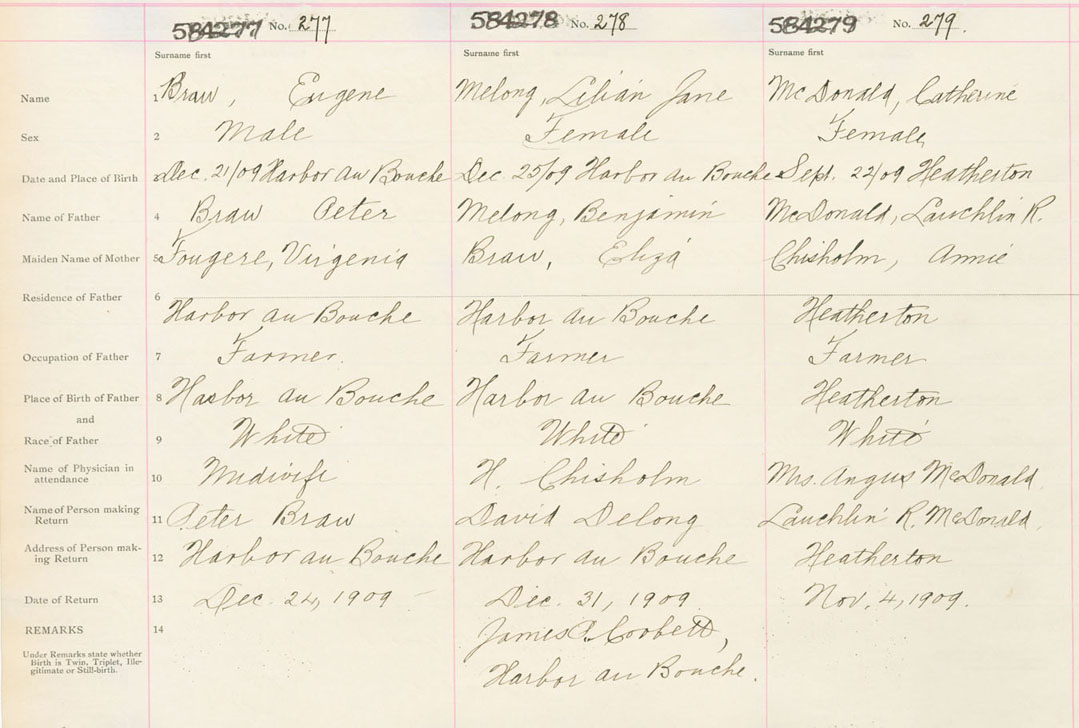 584277 No. 277 584278 No. 278 584279 No. 279.
Surname first Surname first Surname first
Name 1 Braw, Eugene Melong, Lilian Jane McDonald, Catherine
Sex 2 Male Female Female
Date and Place of Birth 3 Dec. 21/09 Harbor au Bouche Dec. 25/09 Harbor au Bouche Sept. 22/09 Heatherton
Name of Father 4 Braw Peter Melong, Benjamin McDonald, Lauchlin R.
Maiden Name of Mother 5 Fougere, Virgenia Braw, Eliza Chisholm, Annie
Residence of Father 6
Harbor au Bouche Harbor au Bouche Heatherton
Occupation of Father 7 Farmer. Farmer Farmer
Place of Birth of Father 8 Harbor au Bouche Harbor au Bouche Heatherton
and
Race of Father 9 White White White
Name of Physician in
attendance 10 Midwife H. Chisholm Mrs. Angus McDonald.
Name of Person making
Return 11 Peter Braw David Delong Lauchlin R. McDonald.
Address of Person mak-
ing Return 12 Harbor au Bouche Harbor au Bouche Heatherton
Date of Return 13 Dec. 24, 1909 Dec. 31, 1909 Nov. 4, 1909.
REMARKS 14 James P. Corbett,
Under Remarks state whether
Birth is Twin, Triplet, Ille-
gitimate or Still-birth.
Harbor au Bouche.